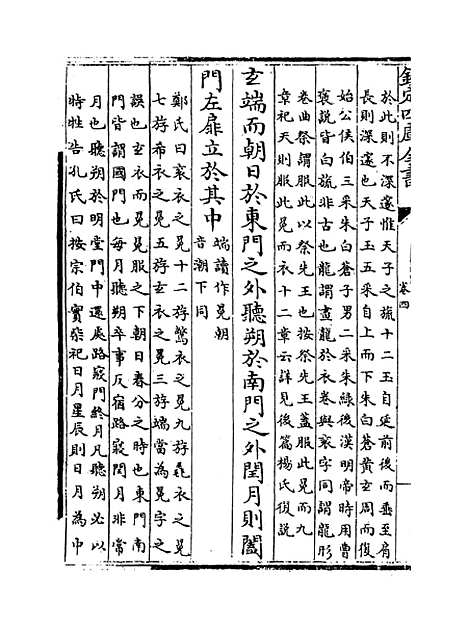 欽定四庫全書
卷四
於此則不深邃惟天子之旒十二玉自延前後而垂至肩
長則深邃也天子玉五采自上而下朱白蒼黄玄周而復
始公侯伯三采朱白蒼子男二采朱緑後漢明帝時用曹
襃説皆白旒非古也龍謂畫龍於衣卷與袞字同謂龍形
卷曲祭謂服此以祭先王也按祭先王蓋服此冕而九
章祀天則服此冕而衣十二章云詳見後篇楊氏復説
玄端而朝日於東門之外聽朔於南門之外閏月則闔
門左扉立於其中
端讀作冕朝
音潮下同
鄭氏曰袞衣之冕十二斿鷩衣之冕九斿毳衣之冕
七斿希衣之冕五斿玄衣之冕三斿端當為冕字之
誤也玄衣而冕冕服之下朝日春分之時也東門南
門皆謂國門也每月聽朔卒事反宿路寢閏月非常
月也聽朔於明堂門中還處路寢門終月凡聽朔必以
特牲告孔氏曰按宗伯實柴祀日月星辰則日月為中